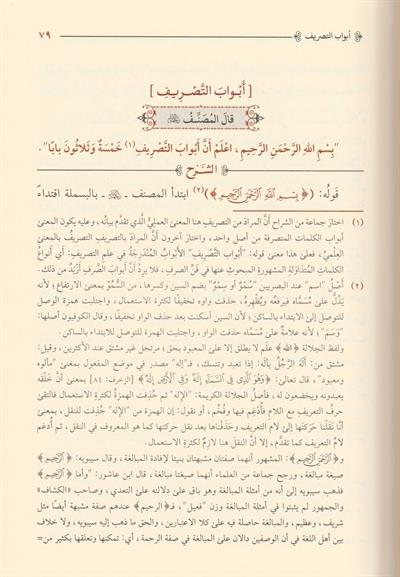 أبواب التصريف
٧٩
[ أَبْوابَ التَّصْرِيفِ ]
قالَ المُصَنِّفُ
"بِسْمِ اللهِ الرَّحْمَنِ الرَّحِيمِ، اعْلَمْ أَنَّ أَبْوابَ التَّصْرِيفِ(١) خَمْسَةٌ وَثَلاثُونَ بابًا".
الشرح
قولُهُ: (﴿بِسْمِ اللَّهِ الرَّحْمَنِ الرَّحِيمِ﴾)(٢) ابتدأ المصنف ـ ـ بالبسملة اقتداءً
(١) اختارَ جماعة من الشراح أنَّ المرادَ من التصريفِ هنا المعنى العمليُّ الَّذي تقدَّم بيانُه، وعليه يكون المعنى
أبواب الكلمات المتصرفة من أصل واحد، واختارَ آخرون أنَّ المرادَ بالتصريفِ التصريفُ بالمعنى
العِلميِّ، فعلى هذا معنى قوله: "أبواب التَّصْريف" الأبوابُ المُنْدَرِجَةُ في علم التصريفِ؛ أي أنواعُ
الكلماتِ المُتداوَلةِ المشهورةِ المبحوثِ عنها في فَنِّ الصرفِ، فلا يردُ أنَّ أبوابَ الصَّرفِ أزيدُ من ذلك.
(٢) أصلُ "اسم" عند البصريين "سُمْوٌ أو سِمْوٌ" بضم السين وكسرها، من السُّمُوِّ بمعنى الارتفاع؛ لأنه
يَدُلُّ على مُسَمَّاه فيرفعُه ويُظْهِرُهُ، حذفت واوه تخفيفًا لكثرة الاستعمال، واجتلبت همزة الوصل
للتوصل إلى الابتداء بالساكن؛ لأن السين أسكنت بعد حذف الواو تخفيفًا، وقال الكوفيون أصلها:
"وَسَمَ"؛ لأنه علامةٌ على مُسَمَّاه حذفت الواو، واجتلبت الهمزة للتوصل للابتداء بالساكن.
ولفظ الجلالة ﴿الله﴾ علم لا يطلق إلا على المعبود بحق؛ مرتجل غير مشتق عند الأكثرين، وقيل:
مشتق من: أَلَهَ الرَّجُلُ يألَه: إذا تعبد وتنسك، فـ"إله" مصدر في موضع المفعول بمعنى "مألوه
ومعبود"، قال تعالى: ﴿وَهُوَ الَّذِي فِي السَّمَاءِ إِلَهٌ وَفِي الْأَرْضِ إِلَهٌ﴾ [الزخرف: ٨٤] بمعنى أنَّ خَلْقَه
يعبدونه ويخضعون له، فأصلُ الجلالة الكريمة: "الإله" ثم حُذِفت الهمزةُ لكثرةِ الاستعمال فالتقى
حرفُ التعريفِ مع اللام فأدغِم فيها وفُخِّم، أو نقول: إن الهمزة من "الإله" حُذِفت للنقل، بمعنى
أنَّا نَقَلْنا حَرَكَتَها إلى لام التعريف وحَذَفْناها بعد نقل حركتها كما هو المعروف في النقل، ثم أُدغم
لامُ التعريف كما تقدَّم، إلا أنَّ النقلَ هنا لازمٌ لكثرةِ الاستعمال.
و﴿الرَّحْمَنِ الرَّحِيمِ﴾: المشهور أنهما صفتان مشبهتان بنيتا لإفادة المبالغة، وقال سيبويه: ﴿الرَّحِيمِ﴾
صيغة مبالغة، ورجح جماعة من العلماء أنهما صيغتا مبالغة، قال ابن عاشور: "وأما ﴿الرَّحِيمِ﴾
فذهب سيبويه إلى أنه من أمثلة المبالغة وهو باق على دلالته على التعدي، وصاحب «الكشاف»
والجمهور لم يثبتوا في أمثلة المبالغة وزن "فعيل"، فـ﴿الرحيم﴾ عندهم صفة مشبهة أيضًا مثل
شريف، وعظيم، والمبالغة حاصلة فيه على كلا الاعتبارين، والحق ما ذهب إليه سيبويه، ولا خلاف
بين أهل اللغة في أن الوصفين دالان على المبالغة في صفة الرحمة، أي: تمكنها وتعلقها بكثير من=